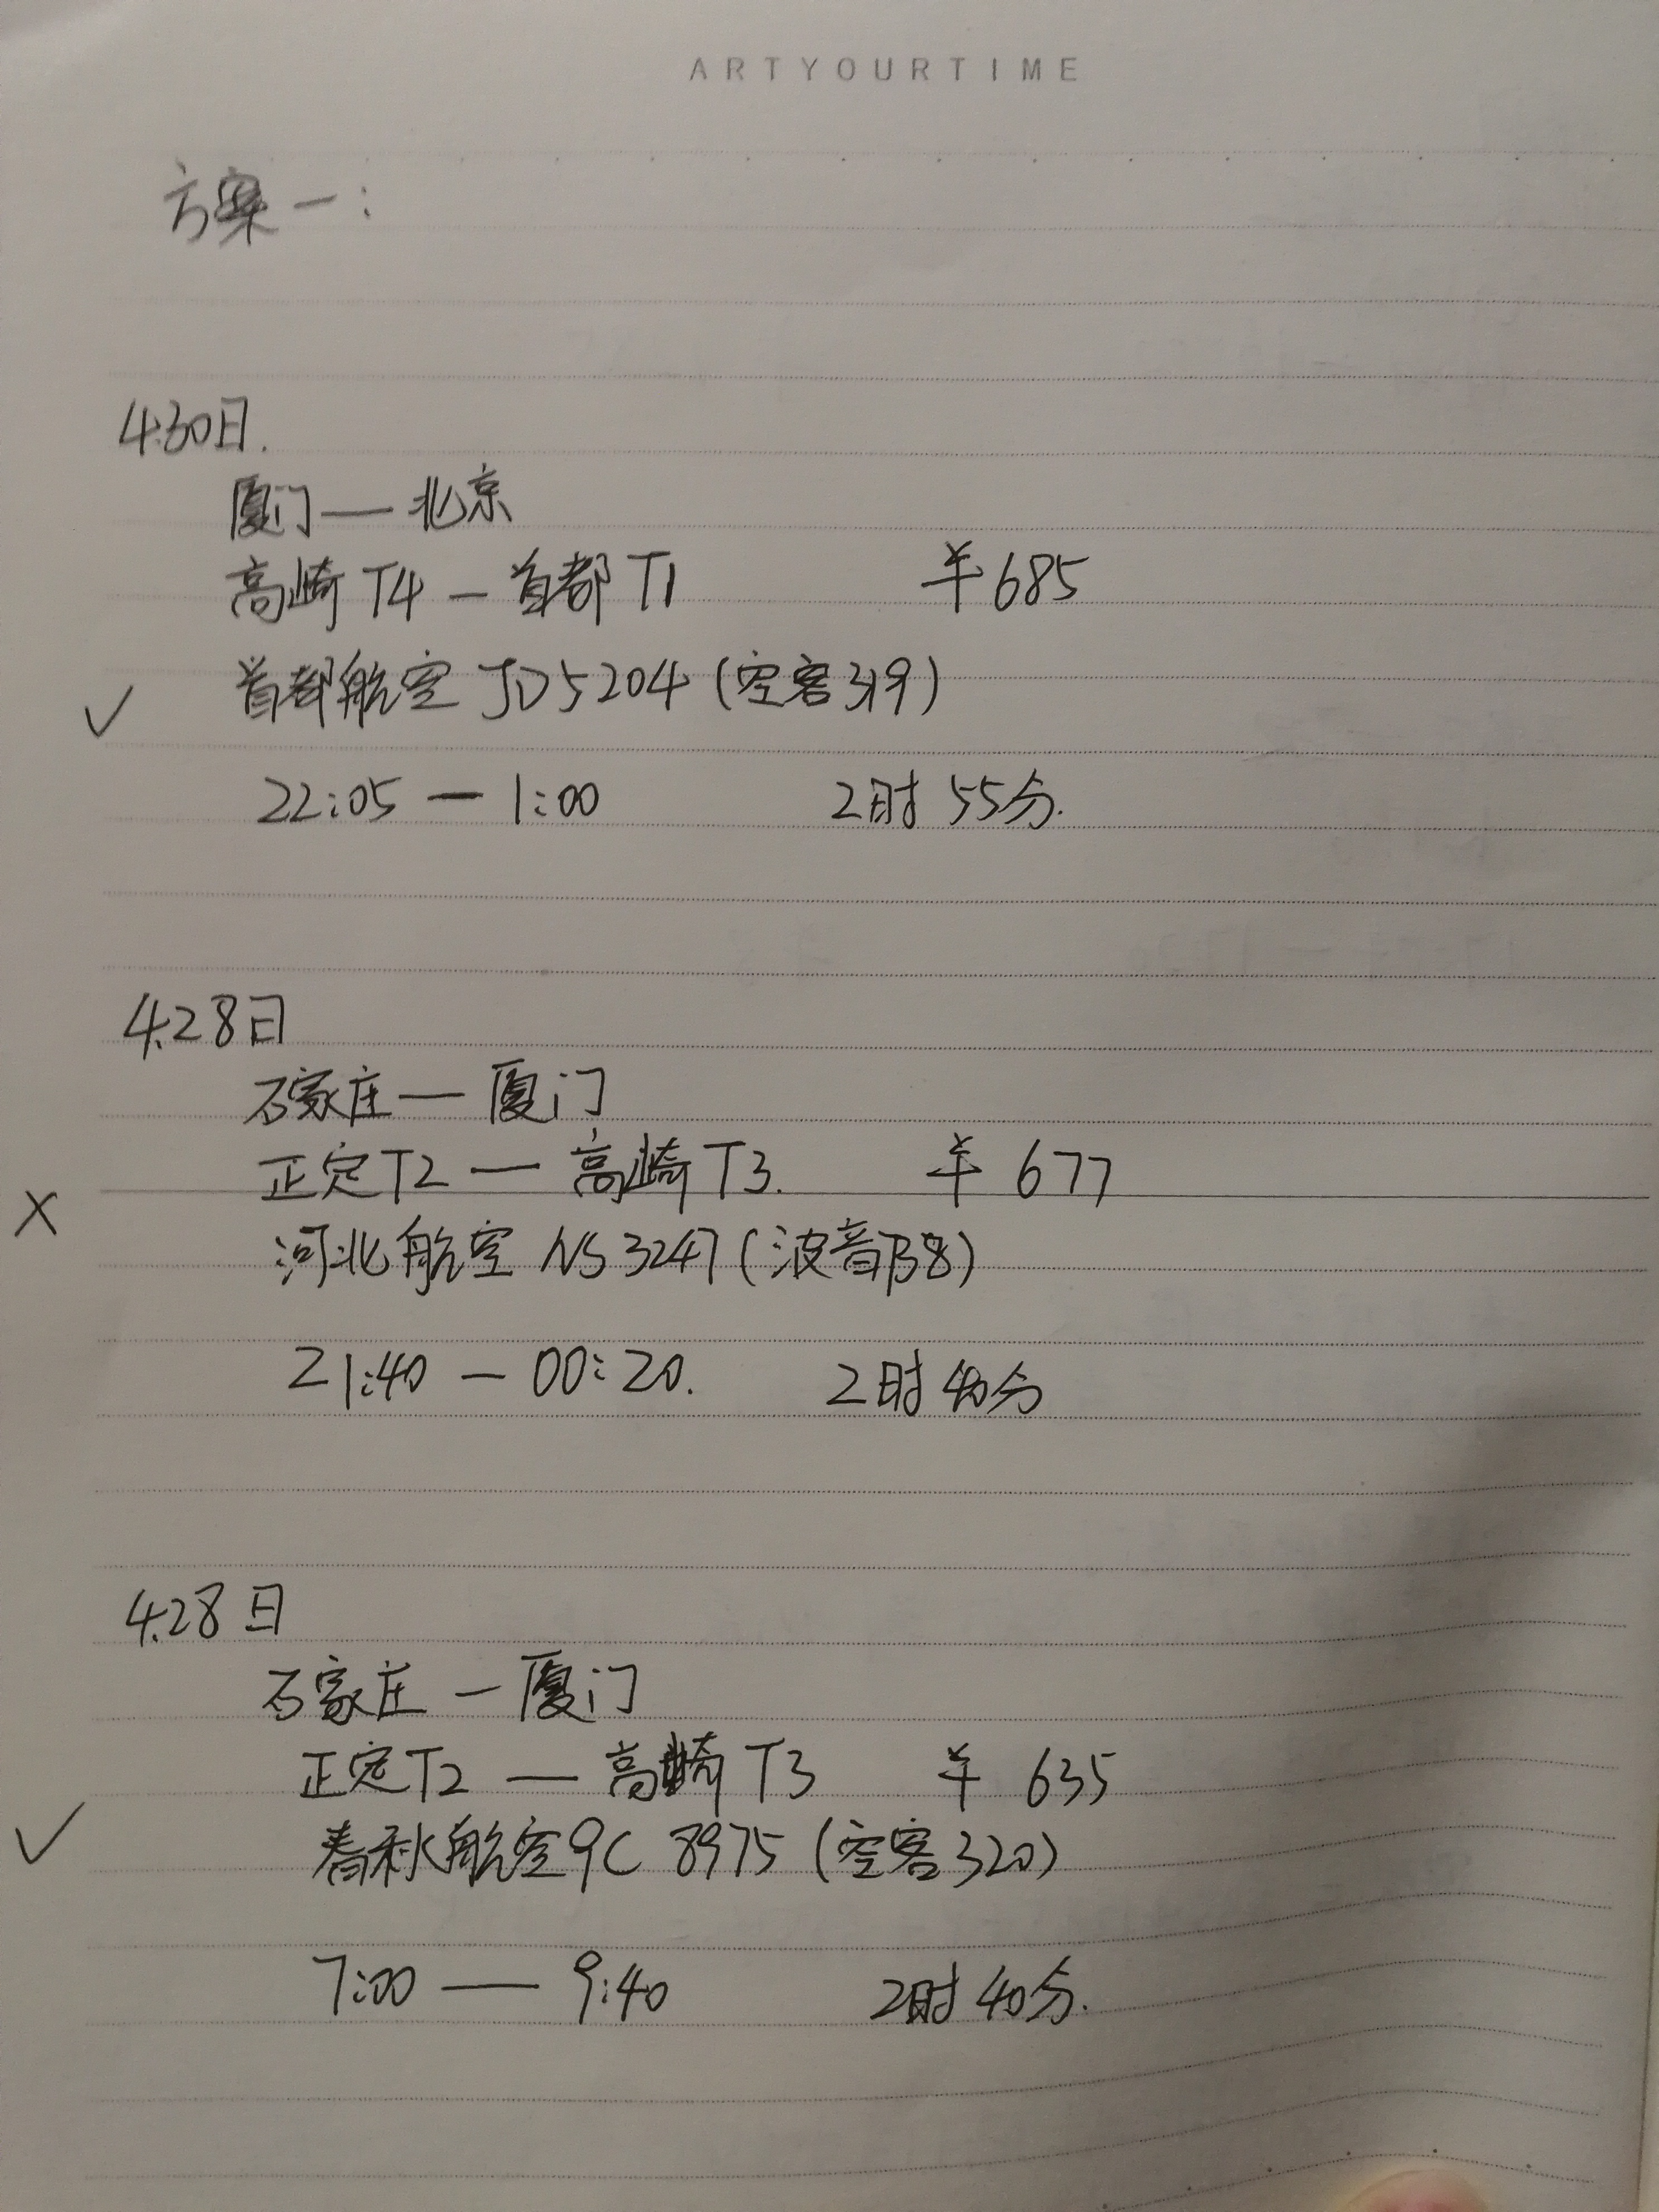 ARTYOURTIME
方案一:
4.30日.
厦门 — 北京
高崎 T4 — 首都 T1 ¥ 685
首都航空 JD5204 (空客319)
✓
22:05 — 1:00 2时 55分.
4.28日
石家庄 — 厦门
正定T2 — 高崎 T3. ¥ 677
×
河北航空 NS 3247 (波音738)
21:40 — 00:20. 2时 40分
4.28日
石家庄 — 厦门
正定T2 — 高崎 T3 ¥ 635
✓
春秋航空9C 8975 (空客320)
7:00 — 9:40 2时 40分.